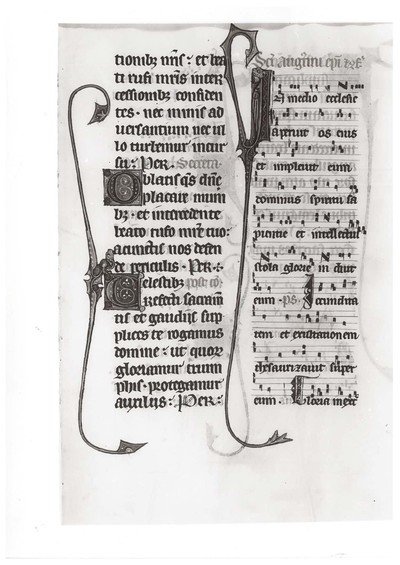 tionibz nr̃is · et bea
ti rufi mr̃is inter
cessionibz confiden
tes · nec minis ad
uersantium nec ul
lo turbemur incur
su · Per · Secreta
Oblatis qs dñe
placare mun
bz · et intercedente
beato rufo mr̃e tuo
a cunctis nos defen
de periculis · Per ·
Celestibz post co
refecti sacram̃
tis et gaudijs sup
plices te rogamus
domine · ut quor
gloriamur trium
phis · protegamur
auxiliis · Per ·
Sci augustini epi
In medio ecclesie
aperuit os eius
et impleuit eum
dominus spiritu sa
piencie et intellectus
stola glorie induit
eum · ps · Iocundita
tem et exultationem
thesaurizauit super
eum · Gloria in exc